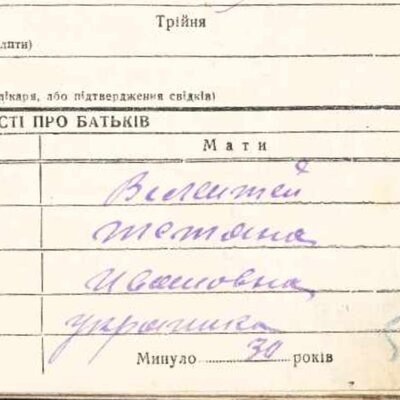 Трійня
лпти)
лікаря, або підтвердження свідків)
СТІ ПРО БАТЬКІВ
Мати
Тетяна
Ивановна
украинка
Минуло 30 років